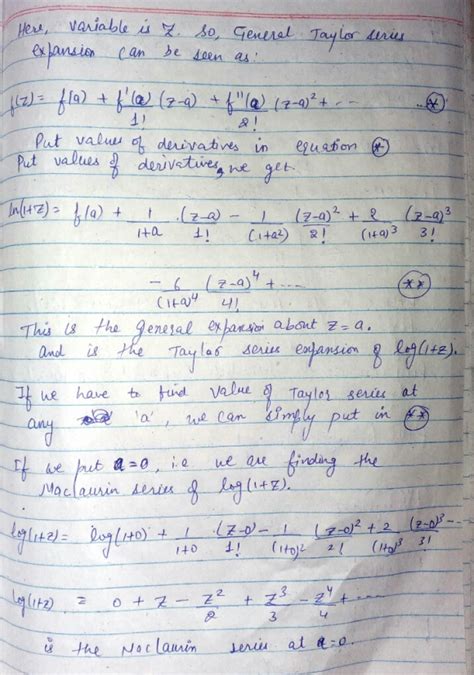 Here, variable is Z. So, General Taylor series
expansion can be seen as:
f(z) = f(a) + f'(a)/1! (z-a) + f''(a)/2! (z-a)² + -- ...(*)
Put values of derivatives in equation (*)
Put values of derivatives, we get.
ln(1+z) = f(a) + 1/(1+a) . (z-a)/1! - 1/(1+a²) (z-a)²/2! + 2/(1+a)³ (z-a)³/3!
- 6/(1+a)⁴ (z-a)⁴/4! + ---- (**)
This is the general expansion about z=a.
and is the Taylor series expansion of log(1+z).
If we have to find value of Taylor series at
any 'a', we can simply put in (**)
If we put a=0, i.e we are finding the
Maclaurin series of log(1+z).
log(1+z) = log(1+0) + 1/(1+0) (z-0)/1! - 1/(1+0)² (z-0)²/2! + 2/(1+0)³ (z-0)³/3! --
log(1+z) = 0 + z - z²/2 + z³/3 - z⁴/4 + ----
is the Maclaurin series at a=0.